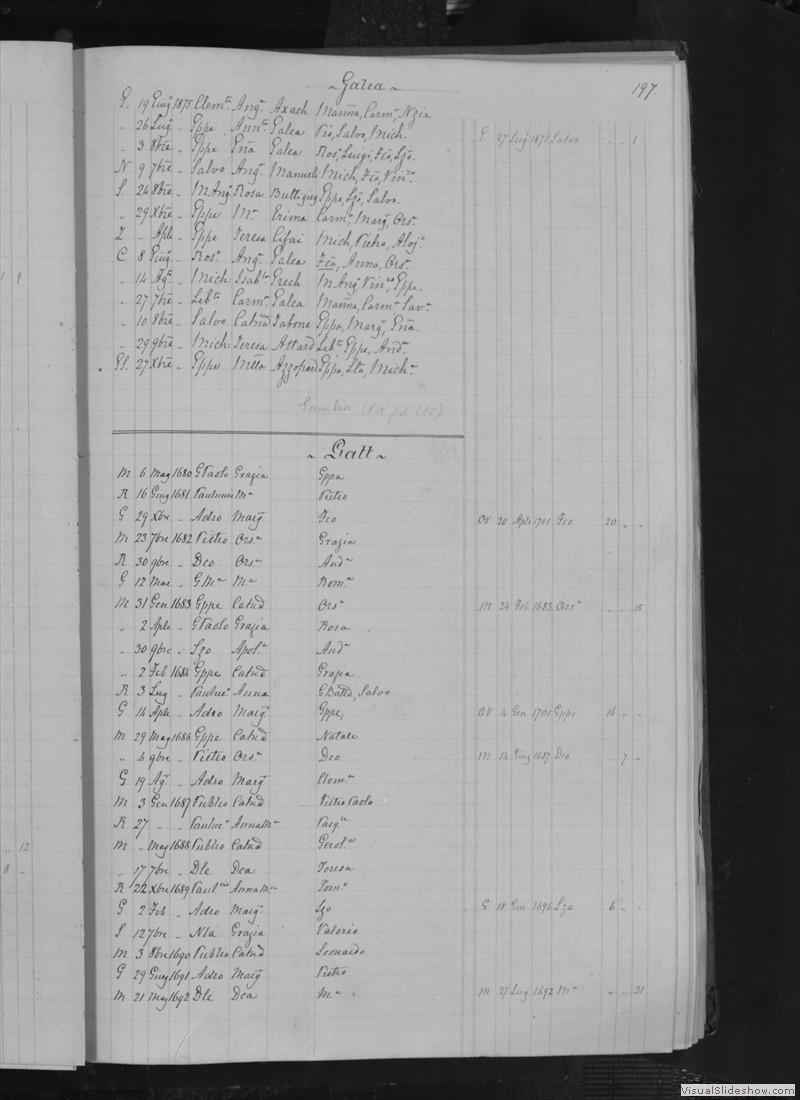 ~ Galea ~ 197.
G. 19 Giug 1875 Clemte Angn Axach Manña, Carmn, Nzia
„ 26 Lug „ Gppe Annta Galea Pio, Salvo, Mich G. 27 Lug 1875 Salvo „ „ 1
„ 3 8bre „ Gppe Ena Galea Roso, Luigi, Fco, Lzo.
N 9 7bre „ Salvo Ang. Manueli Mich, Fco, Vinzo
S. 24 8bre „ MAngo Rosa Buttigieg Gppe, Lzo, Salvo.
„ 29 Xbre „ Gppe Ma Erima Carmn Marg, Orsa
Z „ Aple „ Gppe Teresa Cifai Mich, Pietro, Alojo
C 8 Giug „ Roso Anga Galea Fco, Anna, Orsa
„ 14 Ago „ Mich Isabla Grech MAng, Vinzo, Gppa.
„ 27 7bre „ Libto Carma Galea Manña, Carmn Sava
„ 10 8bre „ Salvo Catnd Tabone Gppa, Marg, Ena.
„ 29 9bre „ Mich Teresa Attard Libta Gppe, Anda
27 Xbre „ Gppe Mtta Azzopard Gppa, Mich
~ Gatt ~
M 6 Mag 1680 GPaolo Grazia Gppa
R 16 Giug 1681 Paulucio Ma Pietro
G 29 Xbre „ Adro Marg Fco OV 20 Aple 1701 Fco 20 „ „
M 23 7bre 1682 Pietro Orsa Grazia
R 30 9bre „ Dco Orsa Anda
G 12 Mar „ GMa Ma Doma
M 31 Gen 1683 Gppe Catnd Orsa M 24 Feb 1683 Orsa „ „ 15
„ 2 Aple „ GPaolo Grazia Rosa
„ 30 9bre „ Lzo Apola Anda
„ 2 Feb 1684 Gppe Catnd Grazia
R 3 Lug „ Pauluco Anna GBatta, Salvo
G 14 Aple „ Adro Marg Gppe, OV 4 Gen 1701 Gppe 16 „ „
M 29 Mag 1686 Gppe Catnd Natale
„ 6 9bre „ Pietro Orsa Dco M 14 Giug 1687 Dco „ 7 „
G 19 Ag. „ Adro Marg Clema
M 3 Gen 1687 Publio Catnd Pietro Paolo
R 27 „ „ Pauluco AnnaMa Pasqle
M „ Mag 1688 Publio Catnd Gerolo
„ 17 7bre „ Dle Dca Teresa
R 22 Xbre 1689 Paulcio AnnaMa Tomo
G 2 Feb „ Adro Marg. Lzo G 18 Gen 1696 Lzo 6 „ „
S 12 7bre „ Nla Grazia Valerio
M 3 8bre 1690 Publio Catnd Leonardo
G 29 Giug 1691 Adro Marg Pietro
M 21 Mag 1692 Dle Dca Ma M 27 Lug 1692 Ma „ „ 31
1 9
„ 12
8 „
VisualSlideshow.com